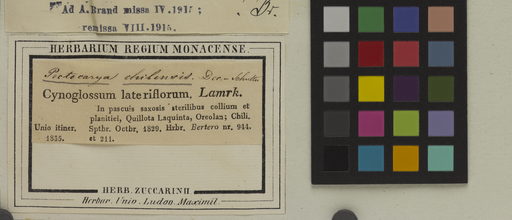 Ad A. Brand missa IV. 1915 ;
remissa VIII. 1915.
Br.
HERBARIUM REGIUM MONACENSE.
Pectocarya chilensis. Dec. – Schultz.
Cynoglossum lateriflorum, Lamrk.
In pascuis saxosis sterilibus collium et
planitiei, Quillota Laquinta, Oreolan; Chili,
Unio itiner. Sptbr. Octbr. 1829. Hrbr. Bertero nr. 944.
1835. et 211.
HERB. ZUCCARINII
Herbar. Univ. Ludov. Maximil.